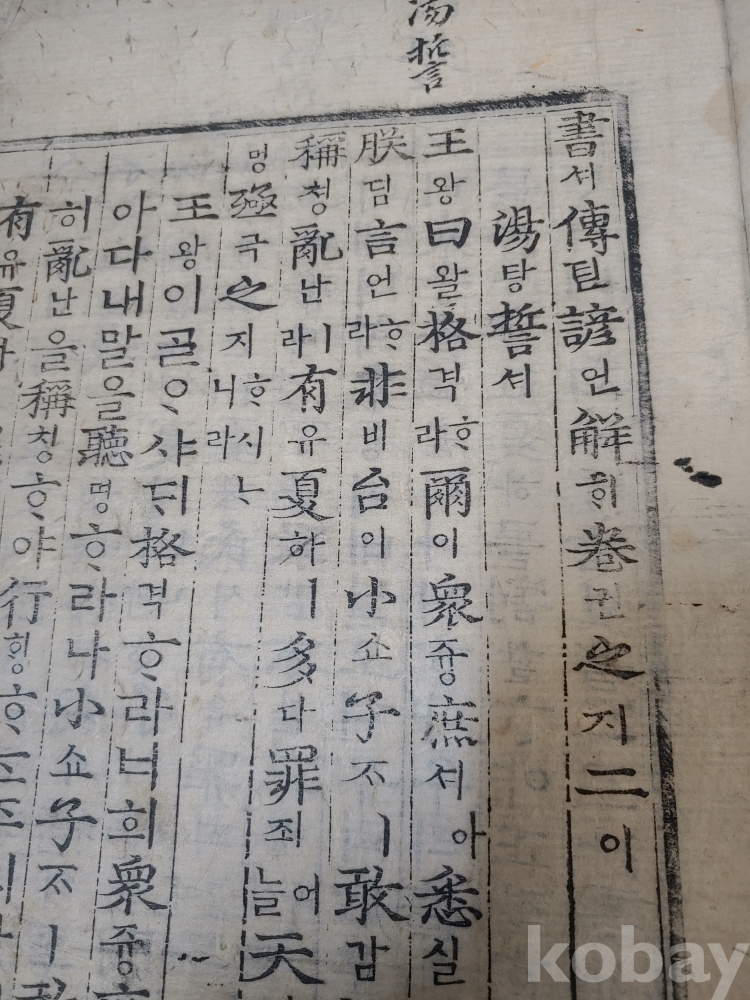 湯誓
書셔傳뎐諺언解ᄒᆡ卷권之지二이
湯탕誓셔
王왕曰왈格격ᄒᆞ라爾이衆즁庶셔아悉실
朕딤言언ᄒᆞ라非비台이小쇼子ᄌᆞㅣ敢감
稱칭亂난ㅣ라有유夏하ㅣ多다罪죄어늘天
명殛극之지ᄒᆞ시ᄂᆞ니라
王왕이ᄀᆞᆯᄋᆞ샤ᄃᆡ格격ᄒᆞ라너희衆즁
아다내말을聽텽ᄒᆞ라나小쇼子ᄌᆞㅣ
히亂난을稱칭ᄒᆞ야行ᄒᆡᆼᄒᆞ
有유夏
kobay